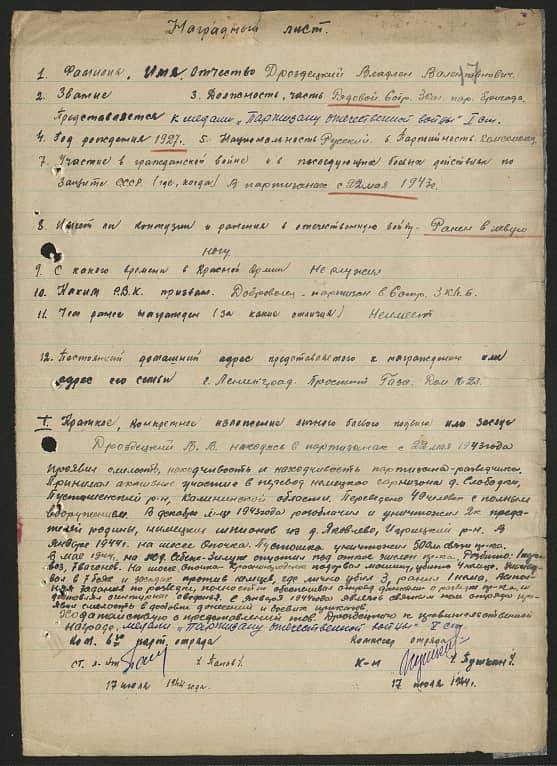 Наградной лист.
1. Фамилия, Имя Отчество Дроздецкий Владлен Валентинович.
2. Звание 3. Должность, часть Рядовой, 6 отр. 3 Кал. пар. бригада,
Представляется к медали „Партизану отечественной войны" I ст.
4. Год рождения 1927г. 5. Национальность Русский. 6. Партийность Комсомолец
7. Участие в гражданской войне и в последующих боевых действиях по
защите СССР (где, когда) В партизанах с 22 мая 1943г.
8. Имеет ли контузии и ранения в отечественную войну. Ранен в левую
ногу
9. С какого времени в Красной Армии Не служил
10. Каким Р.В.К. призван. Доброволец - партизан в 6 отр. 3 К.П.Б.
11. Чем ранее награжден (за какие отличия) Не имеет
12. Постоянный домашний адрес представляемого к награждению или
адрес его семьи г. Ленинград. Проспект Газа. Дом № 23.
I. Краткое, конкретное изложение личного боевого подвига или заслуг
Дроздецкий В. В. находясь в партизанах с 22 мая 1943 года
проявил смелость, находчивость и находчивость партизана-разведчика.
Принимал активное участие в перевод немецкого гарнизона д. Слободка,
Пустошенский р-н, Калининской области. Переведено 40 человек с полным
вооружением. В декабре м-це 1943 года разоблачил и уничтожил 2х преда-
телей родины, немецких шпионов из д. Яковлево, Идрицкий р-н. В
январе 1944г. на шоссе Опочка - Пустошка уничтожил 500 м связи пр-ка.
В мае 1944г. на ж.д. Себеж - Зилупе спустил под откос эшелон пр-ка. Разбито: 1 паро-
воз, 7 вагонов. На шоссе Опочка - подорвал машину, убито 4 немца.
в 7 боях и засадах против немцев, где лично убил 3, ранил 1 немца.
задания по разведке, полностью обеспечивал отряд данными о
С января 1944 года являясь связным ком отряда про-
явил смелость в доставке донесений и боевых приказов.
Ходатайствую о представлении тов. Дроздецкого к правительственной
награде, медали „Партизану отечественной войны" I ст.
Ком. 6го парт. отряда Комиссар отряда
ст. л-нт / Панов/. к-н / Пушкин/.
17 июля 1944 года. 17 июля 1944г.